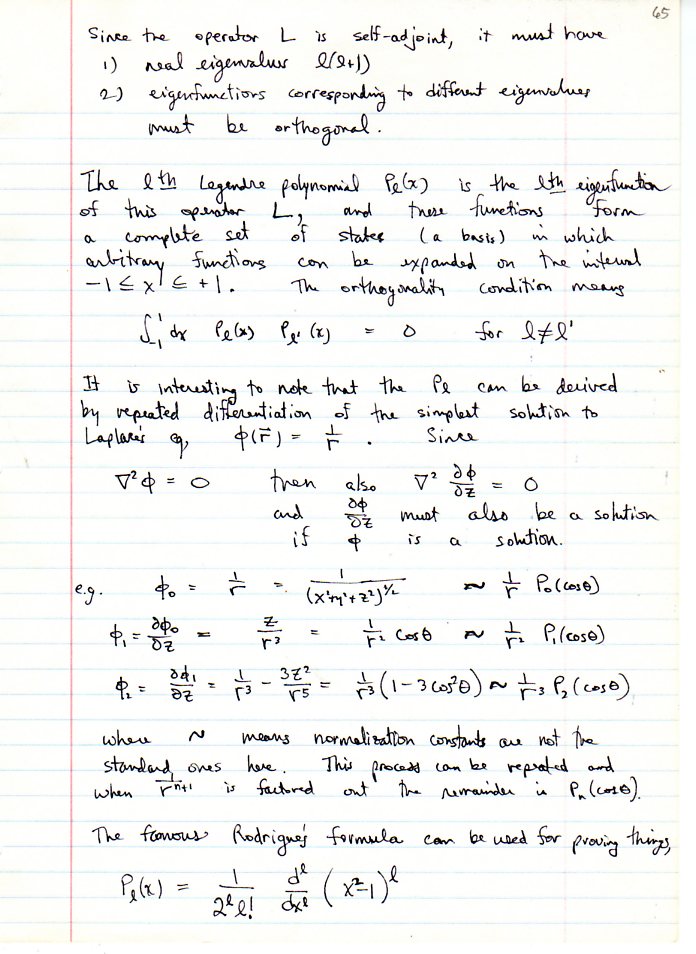 65
Since the operator L is self-adjoint, it must have
1) real eigenvalues l(l+1)
2) eigenfunctions corresponding to different eigenvalues
must be orthogonal.
The lth Legendre polynomial Pl(x) is the lth eigenfunction
of this operator L, and these functions form
a complete set of states (a basis) in which
arbitrary functions can be expanded on the interval
-1 ≤ x ≤ +1. The orthogonality condition means
∫_{-1}^{1} dx Pl(x) Pl'(x) = 0 for l≠l'
It is interesting to note that the Pl can be derived
by repeated differentiation of the simplest solution to
Laplace's eq, ϕ(r⃗) = 1/r . Since
∇²ϕ = 0 then also ∇² ∂ϕ/∂z = 0
and ∂ϕ/∂z must also be a solution
if ϕ is a solution.
e.g. ϕ₀ = 1/r = 1/(x²+y²+z²)^{1/2} ~ 1/r P₀(cosθ)
ϕ₁ = ∂ϕ₀/∂z = z/r³ = 1/r² cosθ ~ 1/r² P₁(cosθ)
ϕ₂ = ∂ϕ₁/∂z = 1/r³ - 3z²/r⁵ = 1/r³ (1-3cos²θ) ~ 1/r³ P₂(cosθ)
where ~ means normalization constants are not the
standard ones here. This process can be repeated and
when 1/r^{n+1} is factored out the remainder is Pn(cosθ).
The famous Rodrigue's formula can be used for proving things,
Pl(x) = 1/(2^l l!) d^l/dx^l (x²-1)^l